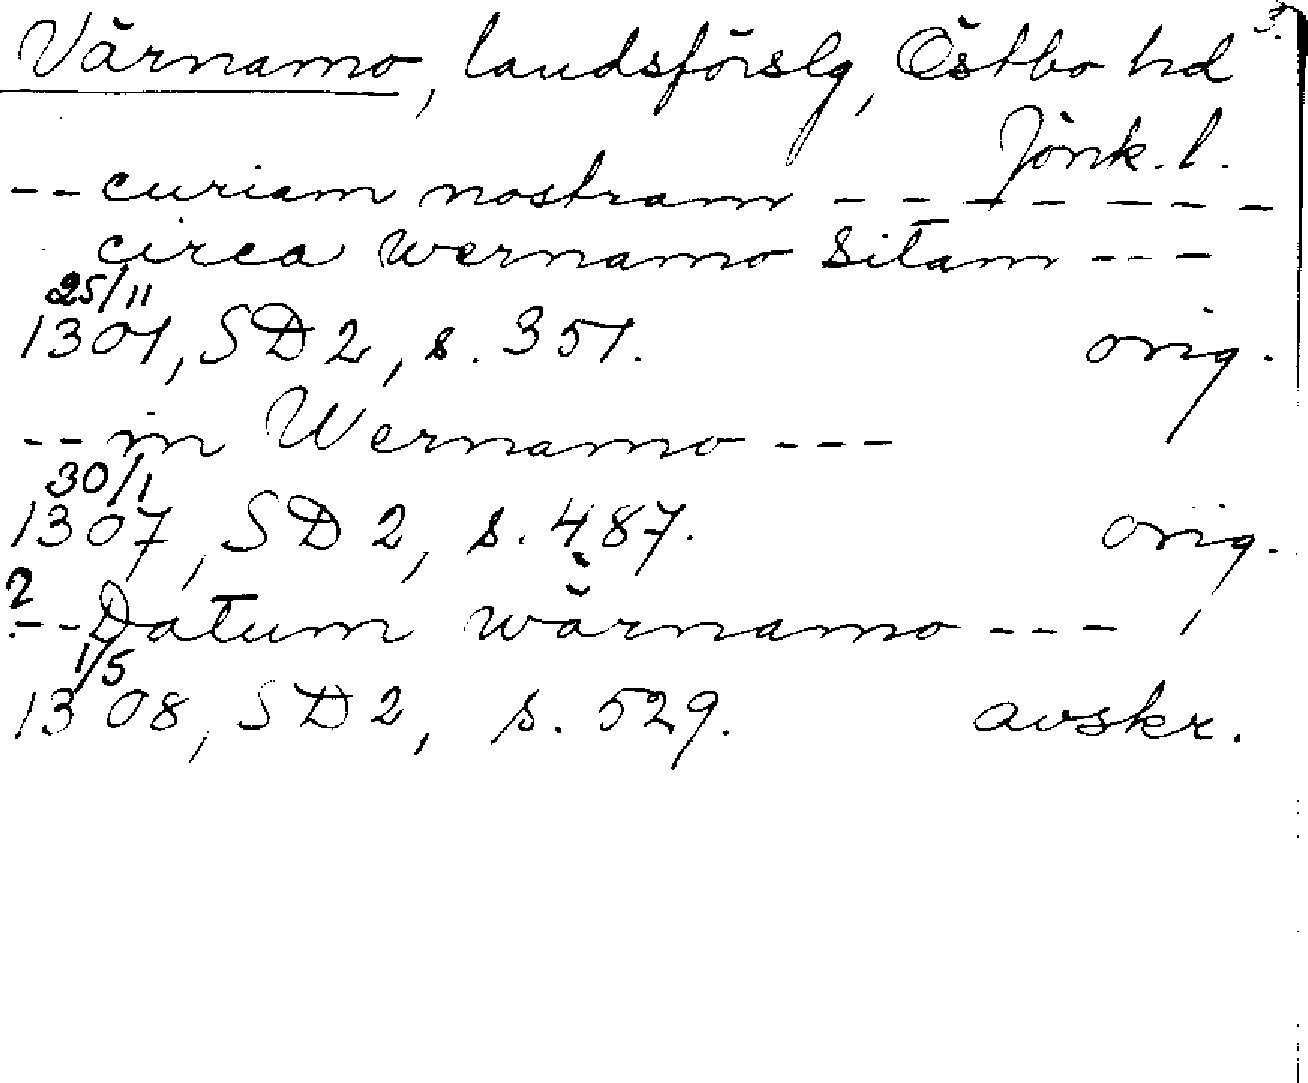 Värnamo, landsförslg, Östbo hd 3.
Jönk. l.
-- curiam nostram -------
circa wernamo sitam ---
25/11
1301, SD 2, s. 351. orig.
-- in Wernamo ---
30/1
1307, SD 2, s. 487. orig.
? -- Datum wärnamo ---
1/5
1308, SD 2, s. 529. avskr.